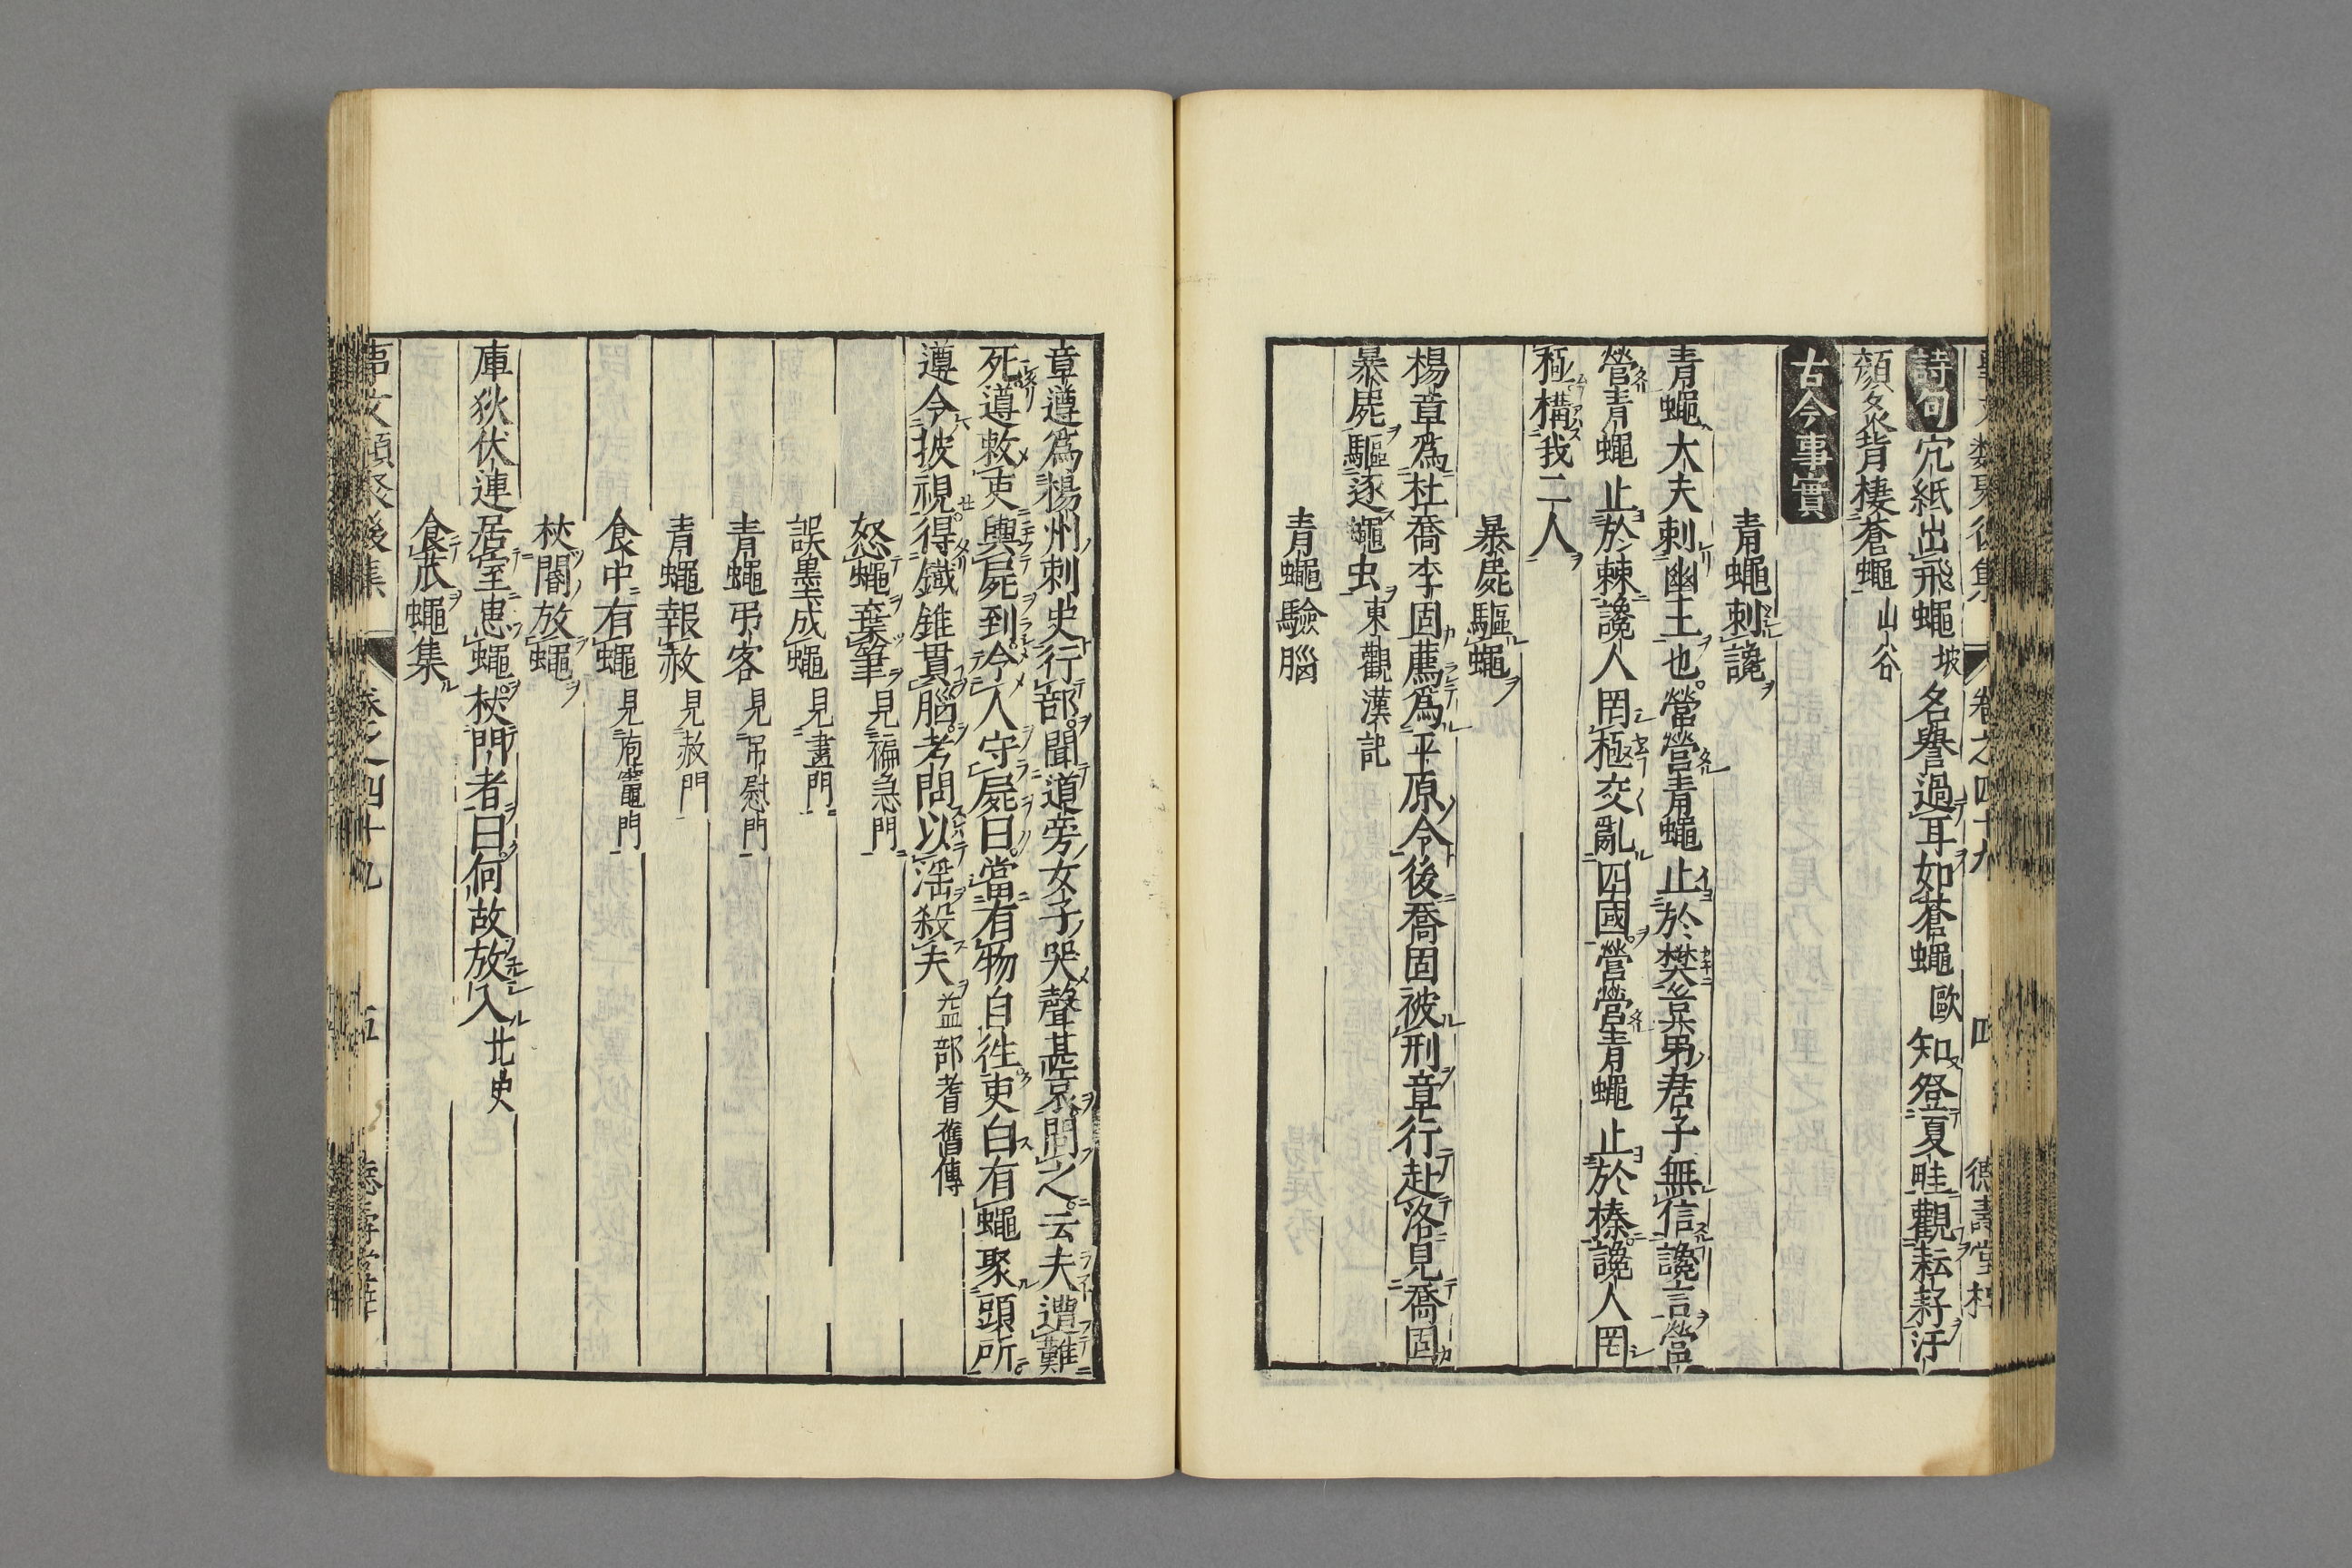 事文類聚後集 卷之四十九 四 德壽堂梓
詩句 穴紙出飛蠅 坡 名譽過耳如蒼蠅 歐 知登夏畦觀耘耔汙
顏炙背棲蒼蠅 山谷
古今事實
青蠅刺讒
青蠅大夫刺幽王也營營青蠅止於樊豈弟君子無信讒言營
營青蠅止於棘讒人罔極交亂四國營營青蠅止於榛讒人罔
極構我二人
暴屍驅蠅
楊章為杜喬李固薦為平原令後喬固被刑章行赴洛見喬固
暴屍驅逐蠅虫 東觀漢記
青蠅驗腦
章遵為楊州刺史行部聞道旁女子哭聲甚哀問之云夫遭難
死遵敕吏輿屍到令人守屍曰當有物自徃吏白有蠅聚頭所
遵令披視得鐵錐貫腦考問以滛殺夫 益部耆舊傳
怒蠅棄筆 見褊急門
誤墨成蠅 見畫門
青蠅弔客 見吊慰門
青蠅報赦 見赦門
食中有蠅 見庖竈門
杖閽放蠅
庫狄伏連居室患蠅杖門者曰何故放入 北史
食瓜蠅集
事文類聚後集 卷之四十九 五 德壽堂梓